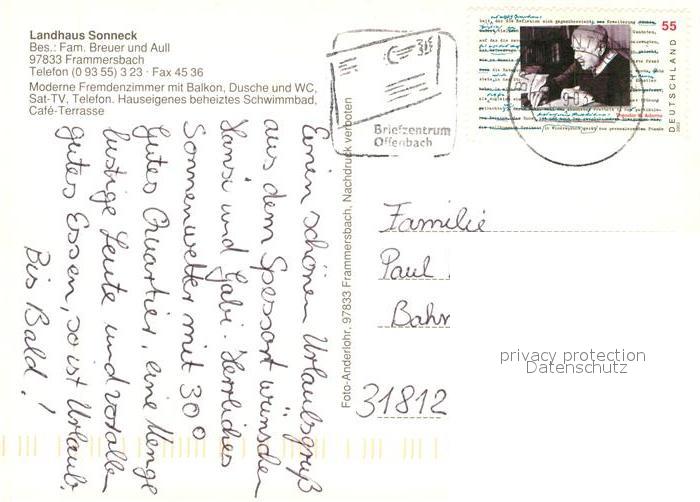 Landhaus Sonneck
Bes.: Fam. Breuer und Aull
97833 Frammersbach
Telefon (0 93 55) 3 23 · Fax 45 36
Moderne Fremdenzimmer mit Balkon, Dusche und WC,
Sat-TV, Telefon. Hauseigenes beheiztes Schwimmbad,
Café-Terrasse
Einen schönen Urlaubsgruß
aus dem Spessart wünschen
Hansi und Gabi. Herrliches
Sonnenwetter mit 30°
Gutes Quartier, eine Menge
lustige Leute und vor allem
gutes Essen, so ist Urlaub.
Bis Bald!
Foto-Anderlohr, 97833 Frammersbach, Nachdruck verboten
Briefzentrum
Offenbach
55
DEUTSCHLAND
Theodor W. Adorno
Familie
Paul
Bahn
31812
privacy protection
Datenschutz